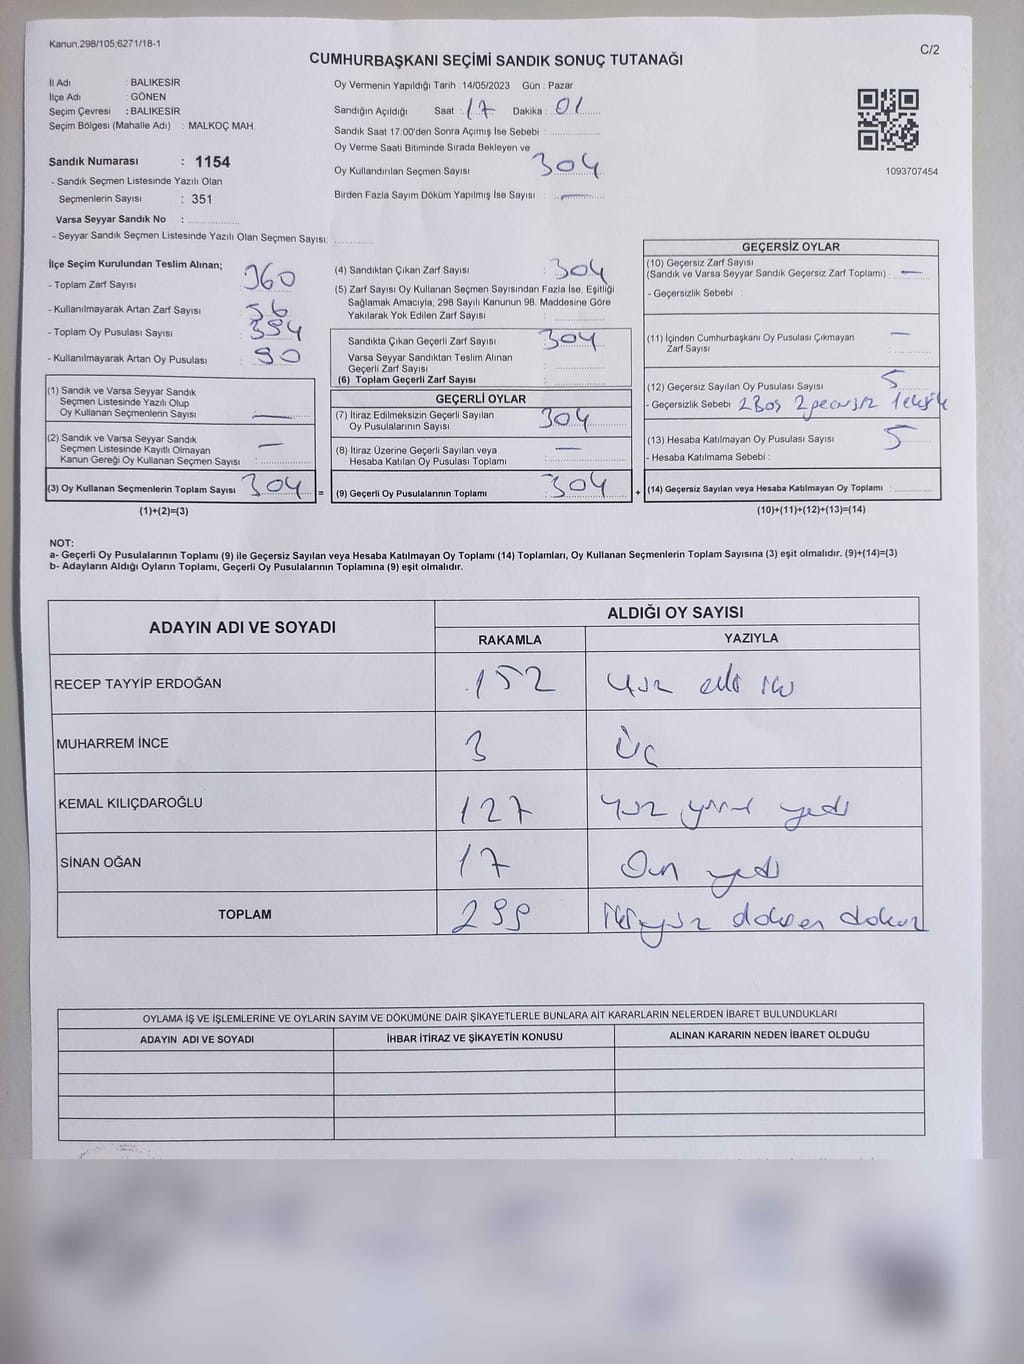 Kanun:298/105;6271/18-1
C/2
CUMHURBAŞKANI SEÇİMİ SANDIK SONUÇ TUTANAĞI
İl Adı : BALIKESİR
İlçe Adı : GÖNEN
Seçim Çevresi : BALIKESİR
Seçim Bölgesi (Mahalle Adı) : MALKOÇ MAH.
Sandık Numarası : 1154
- Sandık Seçmen Listesinde Yazılı Olan
Seçmenlerin Sayısı : 351
Varsa Seyyar Sandık No :
- Seyyar Sandık Seçmen Listesinde Yazılı Olan Seçmen Sayısı:
Oy Vermenin Yapıldığı Tarih : 14/05/2023 Gün : Pazar
Sandığın Açıldığı Saat : 17 Dakika : 01
Sandık Saat 17:00'den Sonra Açımış İse Sebebi :
Oy Verme Saati Bitiminde Sırada Bekleyen ve
Oy Kullandırılan Seçmen Sayısı : 304
Birden Fazla Sayım Döküm Yapılmış İse Sayısı : —
1093707454
İlçe Seçim Kurulundan Teslim Alınan;
- Toplam Zarf Sayısı : 360
- Kullanılmayarak Artan Zarf Sayısı : 56
- Toplam Oy Pusulası Sayısı : 394
- Kullanılmayarak Artan Oy Pusulası : 90
(1) Sandık ve Varsa Seyyar Sandık
Seçmen Listesinde Yazılı Olup
Oy Kullanan Seçmenlerin Sayısı : —
(2) Sandık ve Varsa Seyyar Sandık
Seçmen Listesinde Kayıtlı Olmayan
Kanun Gereği Oy Kullanan Seçmen Sayısı : —
(3) Oy Kullanan Seçmenlerin Toplam Sayısı : 304 =
(1)+(2)=(3)
(4) Sandıktan Çıkan Zarf Sayısı : 304
(5) Zarf Sayısı Oy Kullanan Seçmen Sayısından Fazla İse, Eşitliği
Sağlamak Amacıyla; 298 Sayılı Kanunun 98. Maddesine Göre
Yakılarak Yok Edilen Zarf Sayısı :
Sandıkta Çıkan Geçerli Zarf Sayısı : 304
Varsa Seyyar Sandıktan Teslim Alınan
Geçerli Zarf Sayısı :
(6) Toplam Geçerli Zarf Sayısı :
GEÇERLİ OYLAR
(7) İtiraz Edilmeksizin Geçerli Sayılan
Oy Pusulalarının Sayısı : 304
(8) İtiraz Üzerine Geçerli Sayılan veya
Hesaba Katılan Oy Pusulası Toplamı : —
(9) Geçerli Oy Pusulalarının Toplamı : 304 +
GEÇERSİZ OYLAR
(10) Geçersiz Zarf Sayısı
(Sandık ve Varsa Seyyar Sandık Geçersiz Zarf Toplamı) : —
- Geçersizlik Sebebi :
(11) İçinden Cumhurbaşkanı Oy Pusulası Çıkmayan
Zarf Sayısı : —
(12) Geçersiz Sayılan Oy Pusulası Sayısı : 5
- Geçersizlik Sebebi 2 Boş 2
(13) Hesaba Katılmayan Oy Pusulası Sayısı : 5
- Hesaba Katılmama Sebebi :
(14) Geçersiz Sayılan veya Hesaba Katılmayan Oy Toplamı :
(10)+(11)+(12)+(13)=(14)
NOT:
a- Geçerli Oy Pusulalarının Toplamı (9) ile Geçersiz Sayılan veya Hesaba Katılmayan Oy Toplamı (14) Toplamları, Oy Kullanan Seçmenlerin Toplam Sayısına (3) eşit olmalıdır. (9)+(14)=(3)
b- Adayların Aldığı Oyların Toplamı, Geçerli Oy Pusulalarının Toplamına (9) eşit olmalıdır.
ADAYIN ADI VE SOYADI
ALDIĞI OY SAYISI
RAKAMLA YAZIYLA
RECEP TAYYİP ERDOĞAN 152 yüz elli iki
MUHARREM İNCE 3 Üç
KEMAL KILIÇDAROĞLU 127 yüz yirmi yedi
SİNAN OĞAN 17 On yedi
TOPLAM 299 ikiyüz doksan dokuz
OYLAMA İŞ VE İŞLEMLERİNE VE OYLARIN SAYIM VE DÖKÜMÜNE DAİR ŞİKAYETLERLE BUNLARA AİT KARARLARIN NELERDEN İBARET BULUNDUKLARI
ADAYIN ADI VE SOYADI İHBAR İTİRAZ VE ŞİKAYETİN KONUSU ALINAN KARARIN NEDEN İBARET OLDUĞU